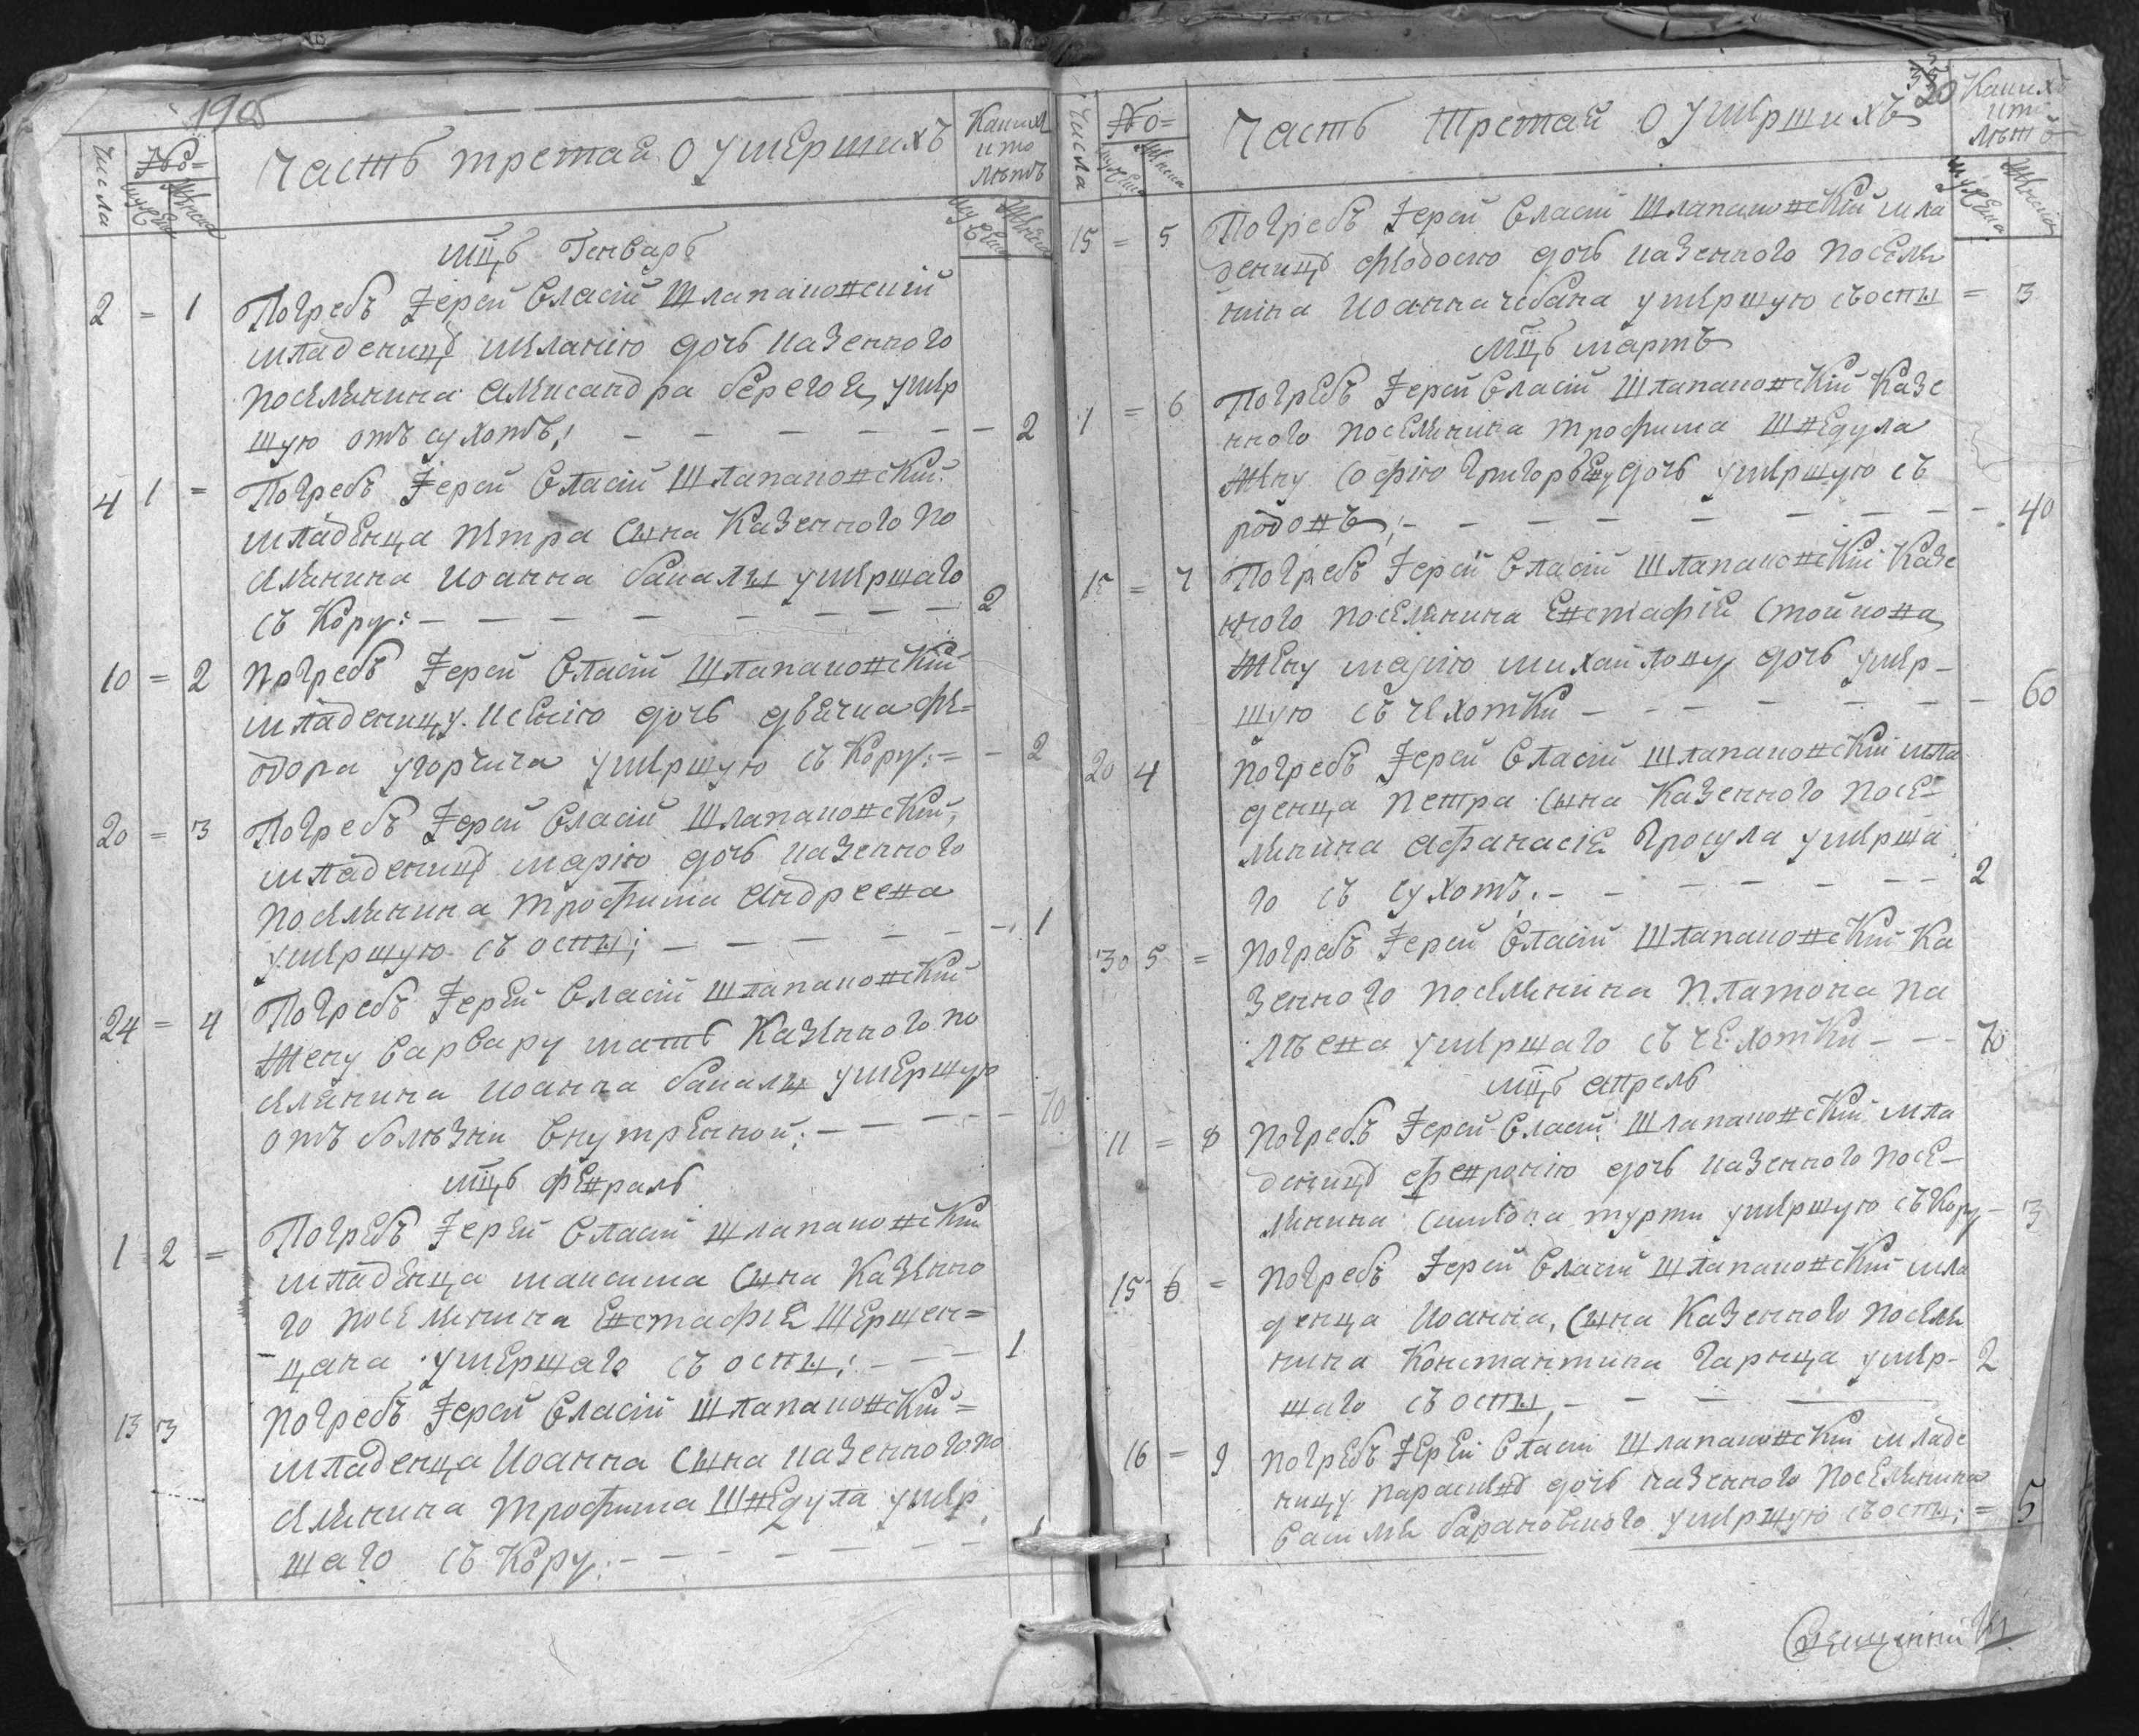 Часть третая о умершихъ
Числа
№
мужеска
женска
Какихъ
ито
лѣтъ
мужеска
женска
мцъ Генварь
2 = 1 Погребъ Іерей Власій Шлапаковскій
младеницꙋ меланію дочь казенного
поселянина Александра берегоя умер
шую отъ сухотъ; — 2
4 1 = Погребъ Іерей Власій Шлапаковскій
младенца Петра сына Казенного по
селянина Иоанна бакалы умершаго
съ Кору: — 2
10 = 2 Погребъ Іерей Власій Шлапаковскій
младеницу. Ксенію дочь дьячка Фе=
одора умершую съ Кору: = — 2
20 = 3 Погребъ Іерей Власій Шлапаковскій,
младеницꙋ марію дочь казенного
поселянина трофима андреева
умершую съ оспы; — 1
24 = 4 Погребъ Іерей Власій Шлапаковскій
жену варвару мать Казенного по
селянина Иоанна бакалы умершую
отъ болѣзни внутренной; — 70
мцъ февраль
1 2 = Погребъ Іерей Власій Шлапаковскій
младенца максима сына Казенно
го поселянина Евстафія Шершен=
цана умершаго съ оспы; — 1
13 3 Погребъ Іерей Власій Шлапаковскій =
младенца Иоанна сына казенного по
селянина трофима Шведула умер
шаго съ Кору: — 1
Часть третая о умершихъ
20
Числа
№
мужеска
женска
Какихъ
ито
лѣтъ
мужеска
женска
15 = 5 Погребъ Іерей Власій Шлапаковскій мла
деницꙋ феодосию дочь казенного поселя
нина Иоанна чебана умершую съ оспы = 3
мцъ мартъ
1 = 6 Погребъ Іерей Власій Шлапаковскій Казе
нного поселянина трофима Шведула
жену Софію Григорьеву дочь умершую съ
родовъ; — 40
15 = 7 Погребъ Іерей Власій Шлапаковскій Казе
нного поселянина Евстафія Стойкова
жену марію михайлову дочь умер-
шую съ чехотки — 60
20 4 Погребъ Іерей Власій Шлапаковскій мла
денца петра сына Казенного посе=
лянина афанасія Гросула умерша
го съ сухотъ: — 2
30 5 = Погребъ Іерей Власій Шлапаковскій Ка
зенного поселянина Платона па
лѣева умершаго съ чехотки — 70
мцъ апрель
11 = 8 Погребъ Іерей Власій Шлапаковскій мла
деницꙋ февронію дочь казенного посе-
лянина Симиона турти умершую съ Кору — 3
15 6 = Погребъ Іерей Власій Шлапаковскій мла
денца Иоанна, сына Казенного поселя
нина Константина Гарнца умер- 2
шаго съ оспы, —
16 = 9 Погребъ Іерей Власій Шлапаковскій младе
ницу параскевꙋ дочь казенного поселянина
василия барановского умершую съ оспы; = 5
Священникъ